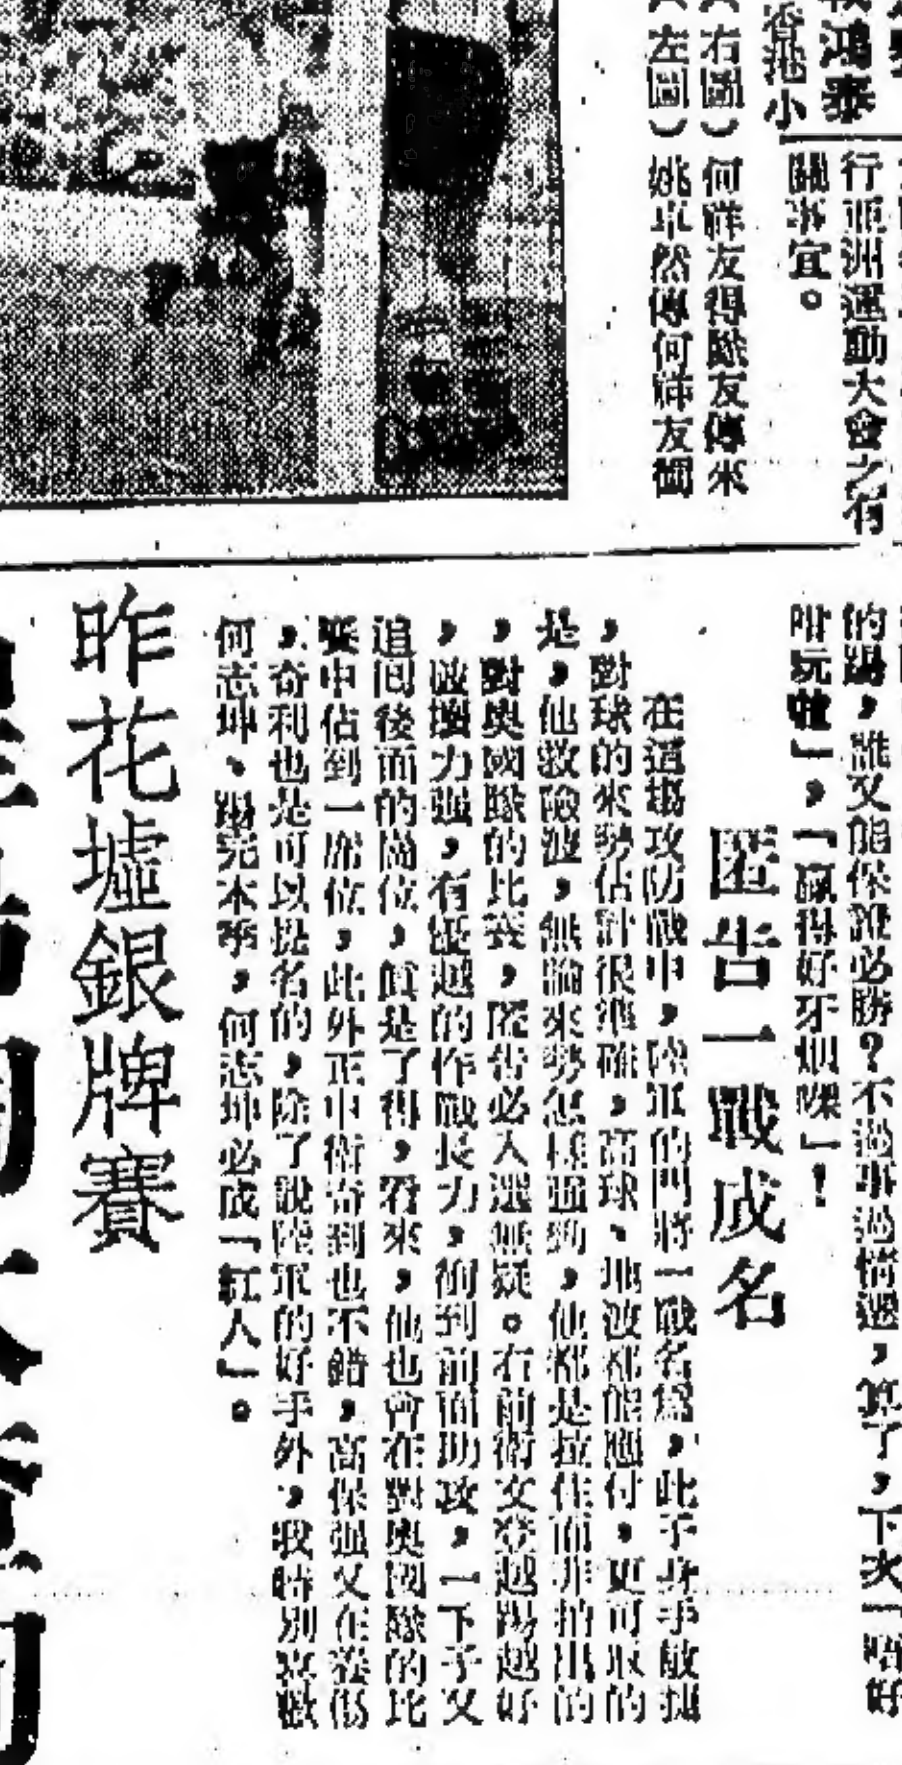 鴻泰
香港小
行亞洲運動大會之有
關事宜。
(右圖)何祥友得隊友傳來
(左圖)姚卓然傳何祥友個
的踢,誰又能保證必勝?不過事過情遷,算了,下次「唔好
咁玩啦」,「贏得好牙烟㗎」!
匿告一戰成名
在這場攻防戰中,陸軍的門將一戰名爲,此子身手敏捷
,對球的來勢估計很準確,高球、地波都能應付,更可取的
是,他救險波,無論來勢怎樣強勁,他都是拉住而非拍出的
,對奧國隊的比賽,匿告必入選無疑。右前衛文登越踢越好
,破壞力強,有優越的作戰長力,衝到前面助攻,一下子又
追回後面的崗位,眞是了得,看來,他也會在對奧國隊的比
賽中佔到一席位,此外正中衛奇到也不錯,高保强又在養傷
,奇利也是可以提名的,除了說陸軍的好手外,我特別喜歡
何志坤、踢完本季,何志坤必成「紅人」。
昨花墟銀牌賽